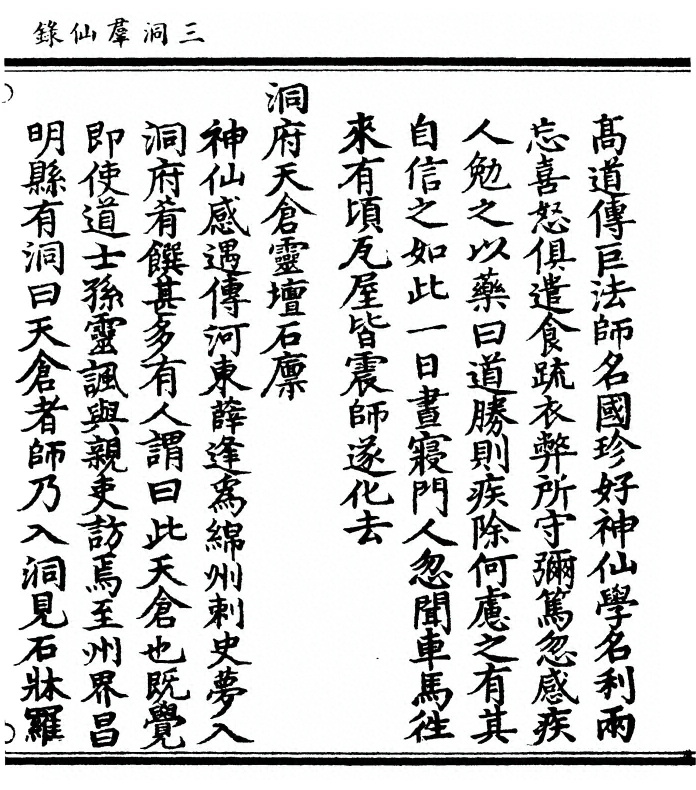 三洞羣仙錄
高道傳巨法師名國珍好神仙學名利兩
忘喜怒俱遣食䟽衣弊所守彌篤忽感疾
人勉之以藥曰道勝則疾除何慮之有其
自信之如此一日晝寢門人忽聞車馬徃
來有頃瓦屋皆震師遂化去
洞府天倉靈壇石廪
神仙感遇傳河東薛逢爲綿州刺史夢入
洞府肴饌甚多有人謂曰此天倉也既覺
即使道士孫靈諷與親吏訪焉至州界昌
明縣有洞曰天倉者師乃入洞見石牀羅